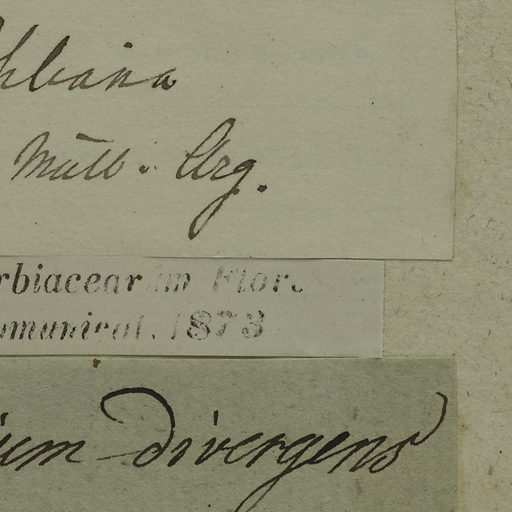 hbana
Müll. Arg.
rbiacearum Flor
omunicat. 1873
ium divergens